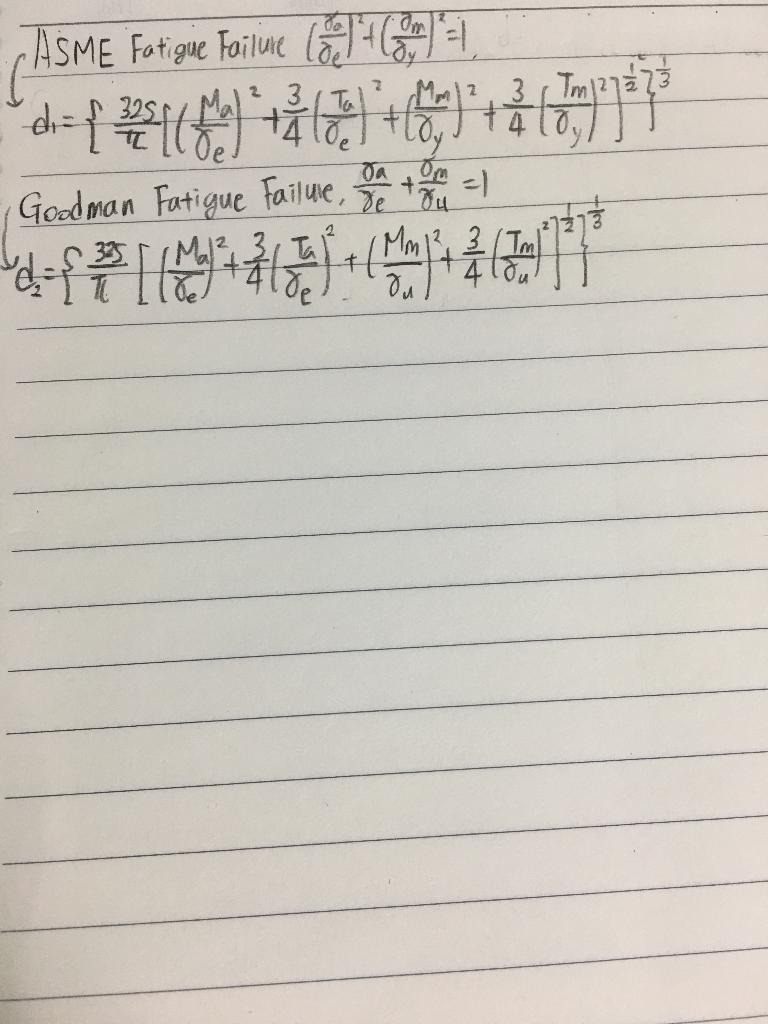 ASME Fatigue Failure (σa/σe)²+(σm/σy)²=1,
d₁={32S/π[(Ma/σe)²+3/4(Ta/σe)²+(Mm/σy)²+3/4(Tm/σy)²]^1/2}^1/3
Goodman Fatigue Failure, σa/σe+σm/σu=1
d₂={32S/π[(Ma/σe)²+3/4(Ta/σe)²+(Mm/σu)²+3/4(Tm/σu)²]^1/2}^1/3